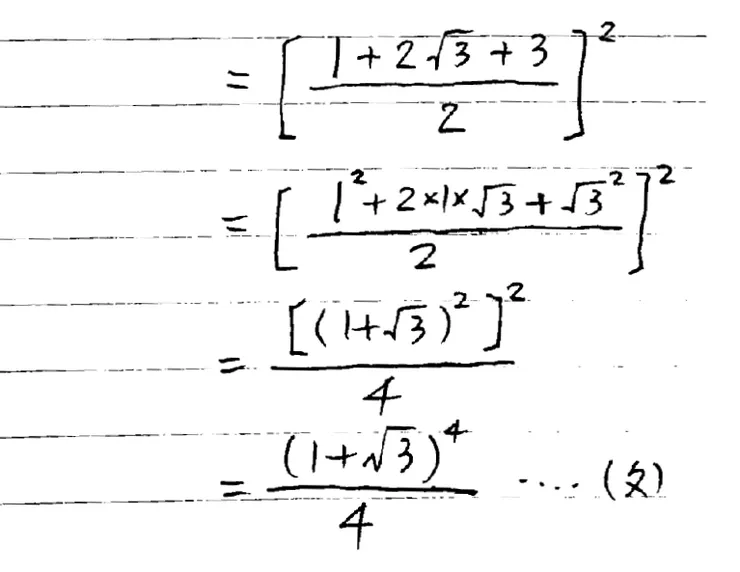 = [ (1 + 2√3 + 3) / 2 ]²
= [ (1² + 2×1×√3 + √3²) / 2 ]²
= [(1+√3)²]² / 4
= (1+√3)⁴ / 4 ···· (文)